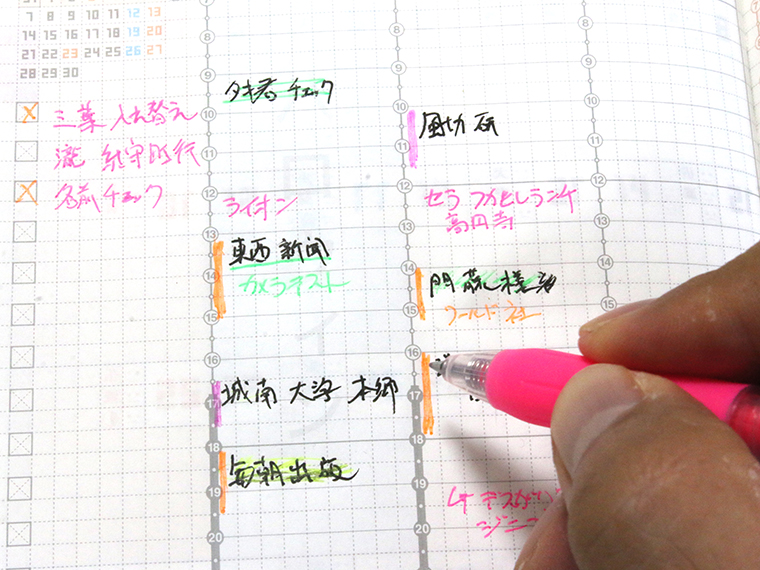 7 8 9 10 11 12 13
14 15 16 17 18 19 20
21 22 23 24 25 26 27
28 29 30
三葉 入れ替え
名前チェック
8
9
10
11
12
13
14
15
16
17
18
19
20
チェック
ライオン
東西新聞
カメラテスト
城南大学 本郷
毎朝出版
8
9
10
11
12
13
14
15
16
17
18
19
20
風切 研
セラ フカヒレランチ
高円寺
門藏様
ワールド社
8
9
10
11
12
13
14
15